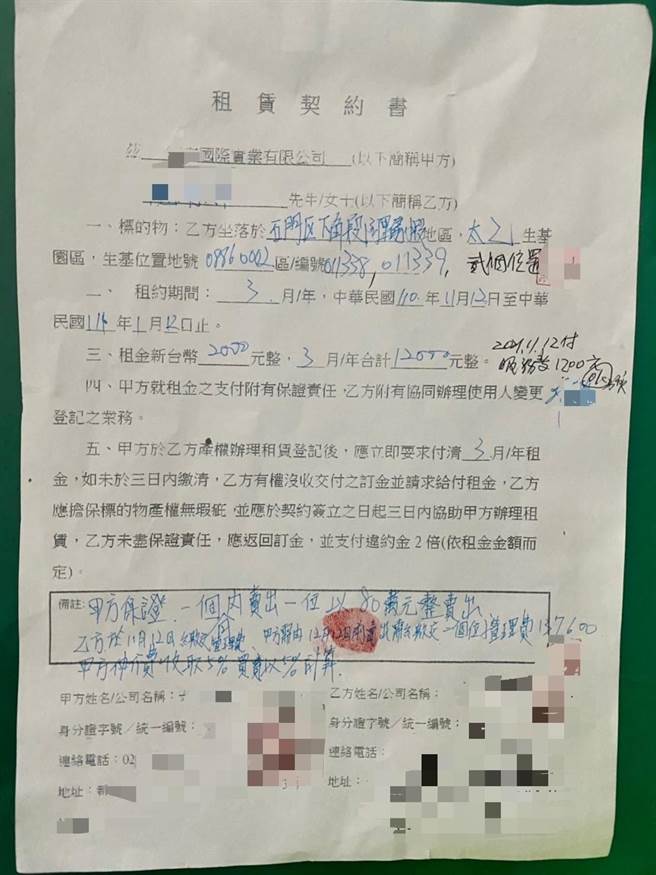 租賃契約書
國際實業有限公司 (以下簡稱甲方)
先生/女士(以下簡稱乙方)
一、標的物：乙方坐落於石門区下角段 地區，太乙 生基
園區，生基位置地號 08860002 區/編號011338，011339，貳個位置
二、 租約期間： 3 月/年，中華民國110年11月12日至中華
民國 年1月12日止。
三、租金新台幣 2000 元整，3 月/年合計12000元整。
2021.11.12付
服務費1200元
四、甲方就租金之支付附有保證責任，乙方附有協同辦理使用人變更
登記之業務。
五、甲方於乙方產權辦理租賃登記後，應立即要求付清 3 月/年租
金，如未於三日內繳清，乙方有權沒收交付之訂金並請求給付租金，乙方
應擔保標的物產權無瑕疵，並應於契約簽立之日起三日內協助甲方辦理租
賃，乙方未盡保證責任，應返回訂金，並支付違約金2倍(依租金金額而
定)。
備註：甲方保證一個月內賣出一位以80萬元整賣出
乙方於11月12日繳交管理費 甲方 12月12日 一個位管理費137600
甲方仲介費收取5% 買賣以5%計算.
甲方姓名/公司名稱：
乙方姓名/公司名稱：
身分證字號／統一編號：
身分證字號／統一編號：
連絡電話：02
連絡電話：
地址：新
地址：